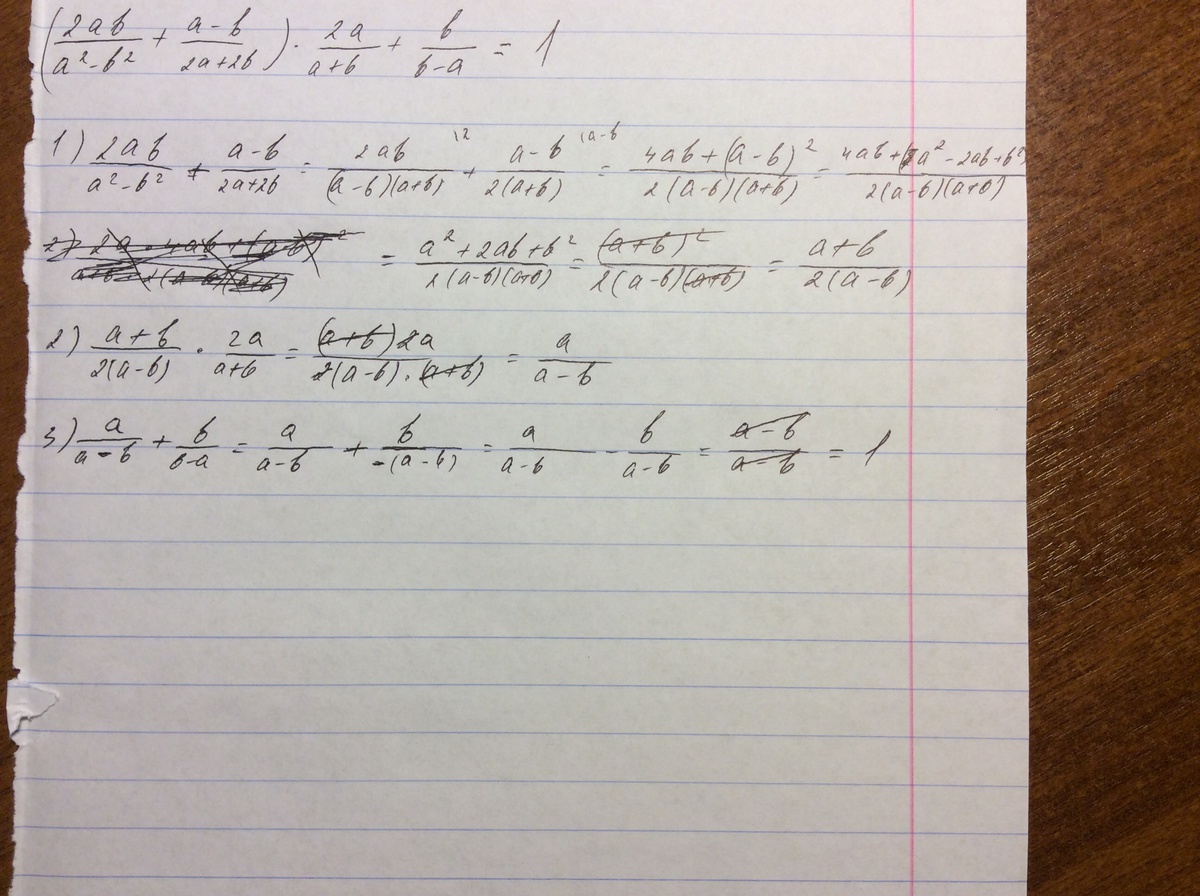 (2ab/(a²-b²) + (a-b)/(2a+2b)) · 2a/(a+b) + b/(b-a) = 1
1) 2ab/(a²-b²) + (a-b)/(2a+2b) = 2ab/((a-b)(a+b)) \2 + (a-b)/(2(a+b)) \a-b = (4ab+(a-b)²)/(2(a-b)(a+b)) = (4ab+(a²-2ab+b²)/(2(a-b)(a+b))
= (a²+2ab+b²)/(2(a-b)(a+b)) = (a+b)²/(2(a-b)(a+b)) = (a+b)/(2(a-b))
2) (a+b)/(2(a-b)) · 2a/(a+b) = (a+b)2a/(2(a-b)·(a+b)) = a/(a-b)
3) a/(a-b) + b/(b-a) = a/(a-b) + b/(-(a-b)) = a/(a-b) - b/(a-b) = (a-b)/(a-b) = 1